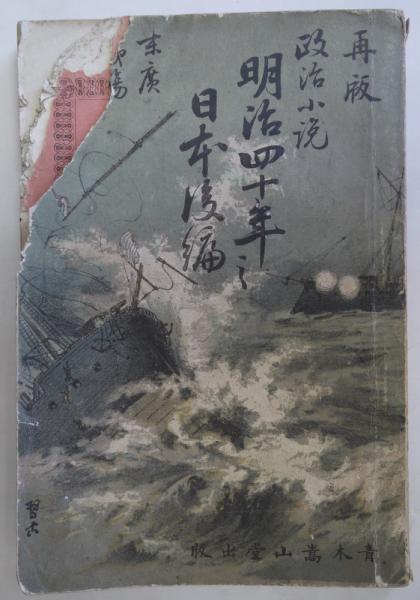 再版
政治小説
明治四十年之
日本後編
末廣
青木嵩山堂出版